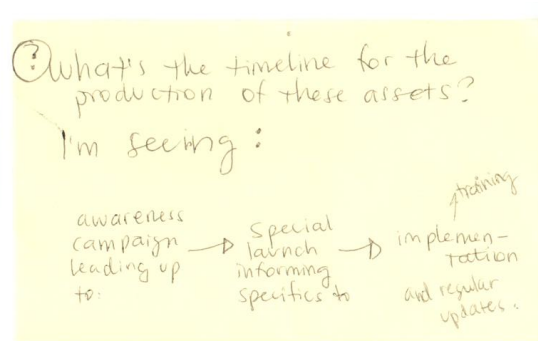 ? What's the timeline for the
production of these assets?
I'm seeing :
awareness
campaign
leading up
to:
→ special
launch
informing
specifics to
→ implemen-
tation
↑ training
and regular
updates.